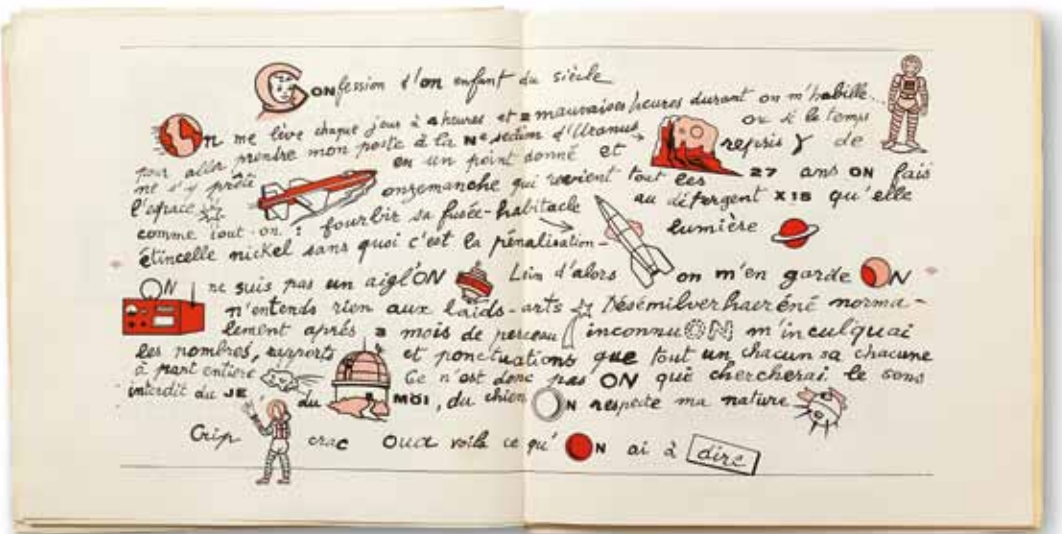 Confession d'on enfant du siècle
On me lève chaque jour à 4 heures et 2 mauvaises heures durant on m'habille...
pour aller prendre mon poste à la Ne section d'Uranus ou si le temps
ne s'y prête en un point donné et repris γ de
l'espace onzemanche qui revient tout les 27 ans ON fais
comme tout on : fourbir sa fusée-habitacle au détergent X15 qu'elle
étincelle nickel sans quoi c'est la pénalisation- lumière
ON ne suis pas un aigl'ON Loin d'alors on m'en garde ON
n'entends rien aux laids-arts norma-
lement après 3 mois de inconnuON m'inculquai
les nombres, rapports et ponctuations que tout un chacun sa chacune
à part entière Ce n'est donc pas ON que chercherai le sens
interdit du JE du MOI, du chien ON respecte ma nature
Crip crac Oua voilà ce qu'ON ai à dire